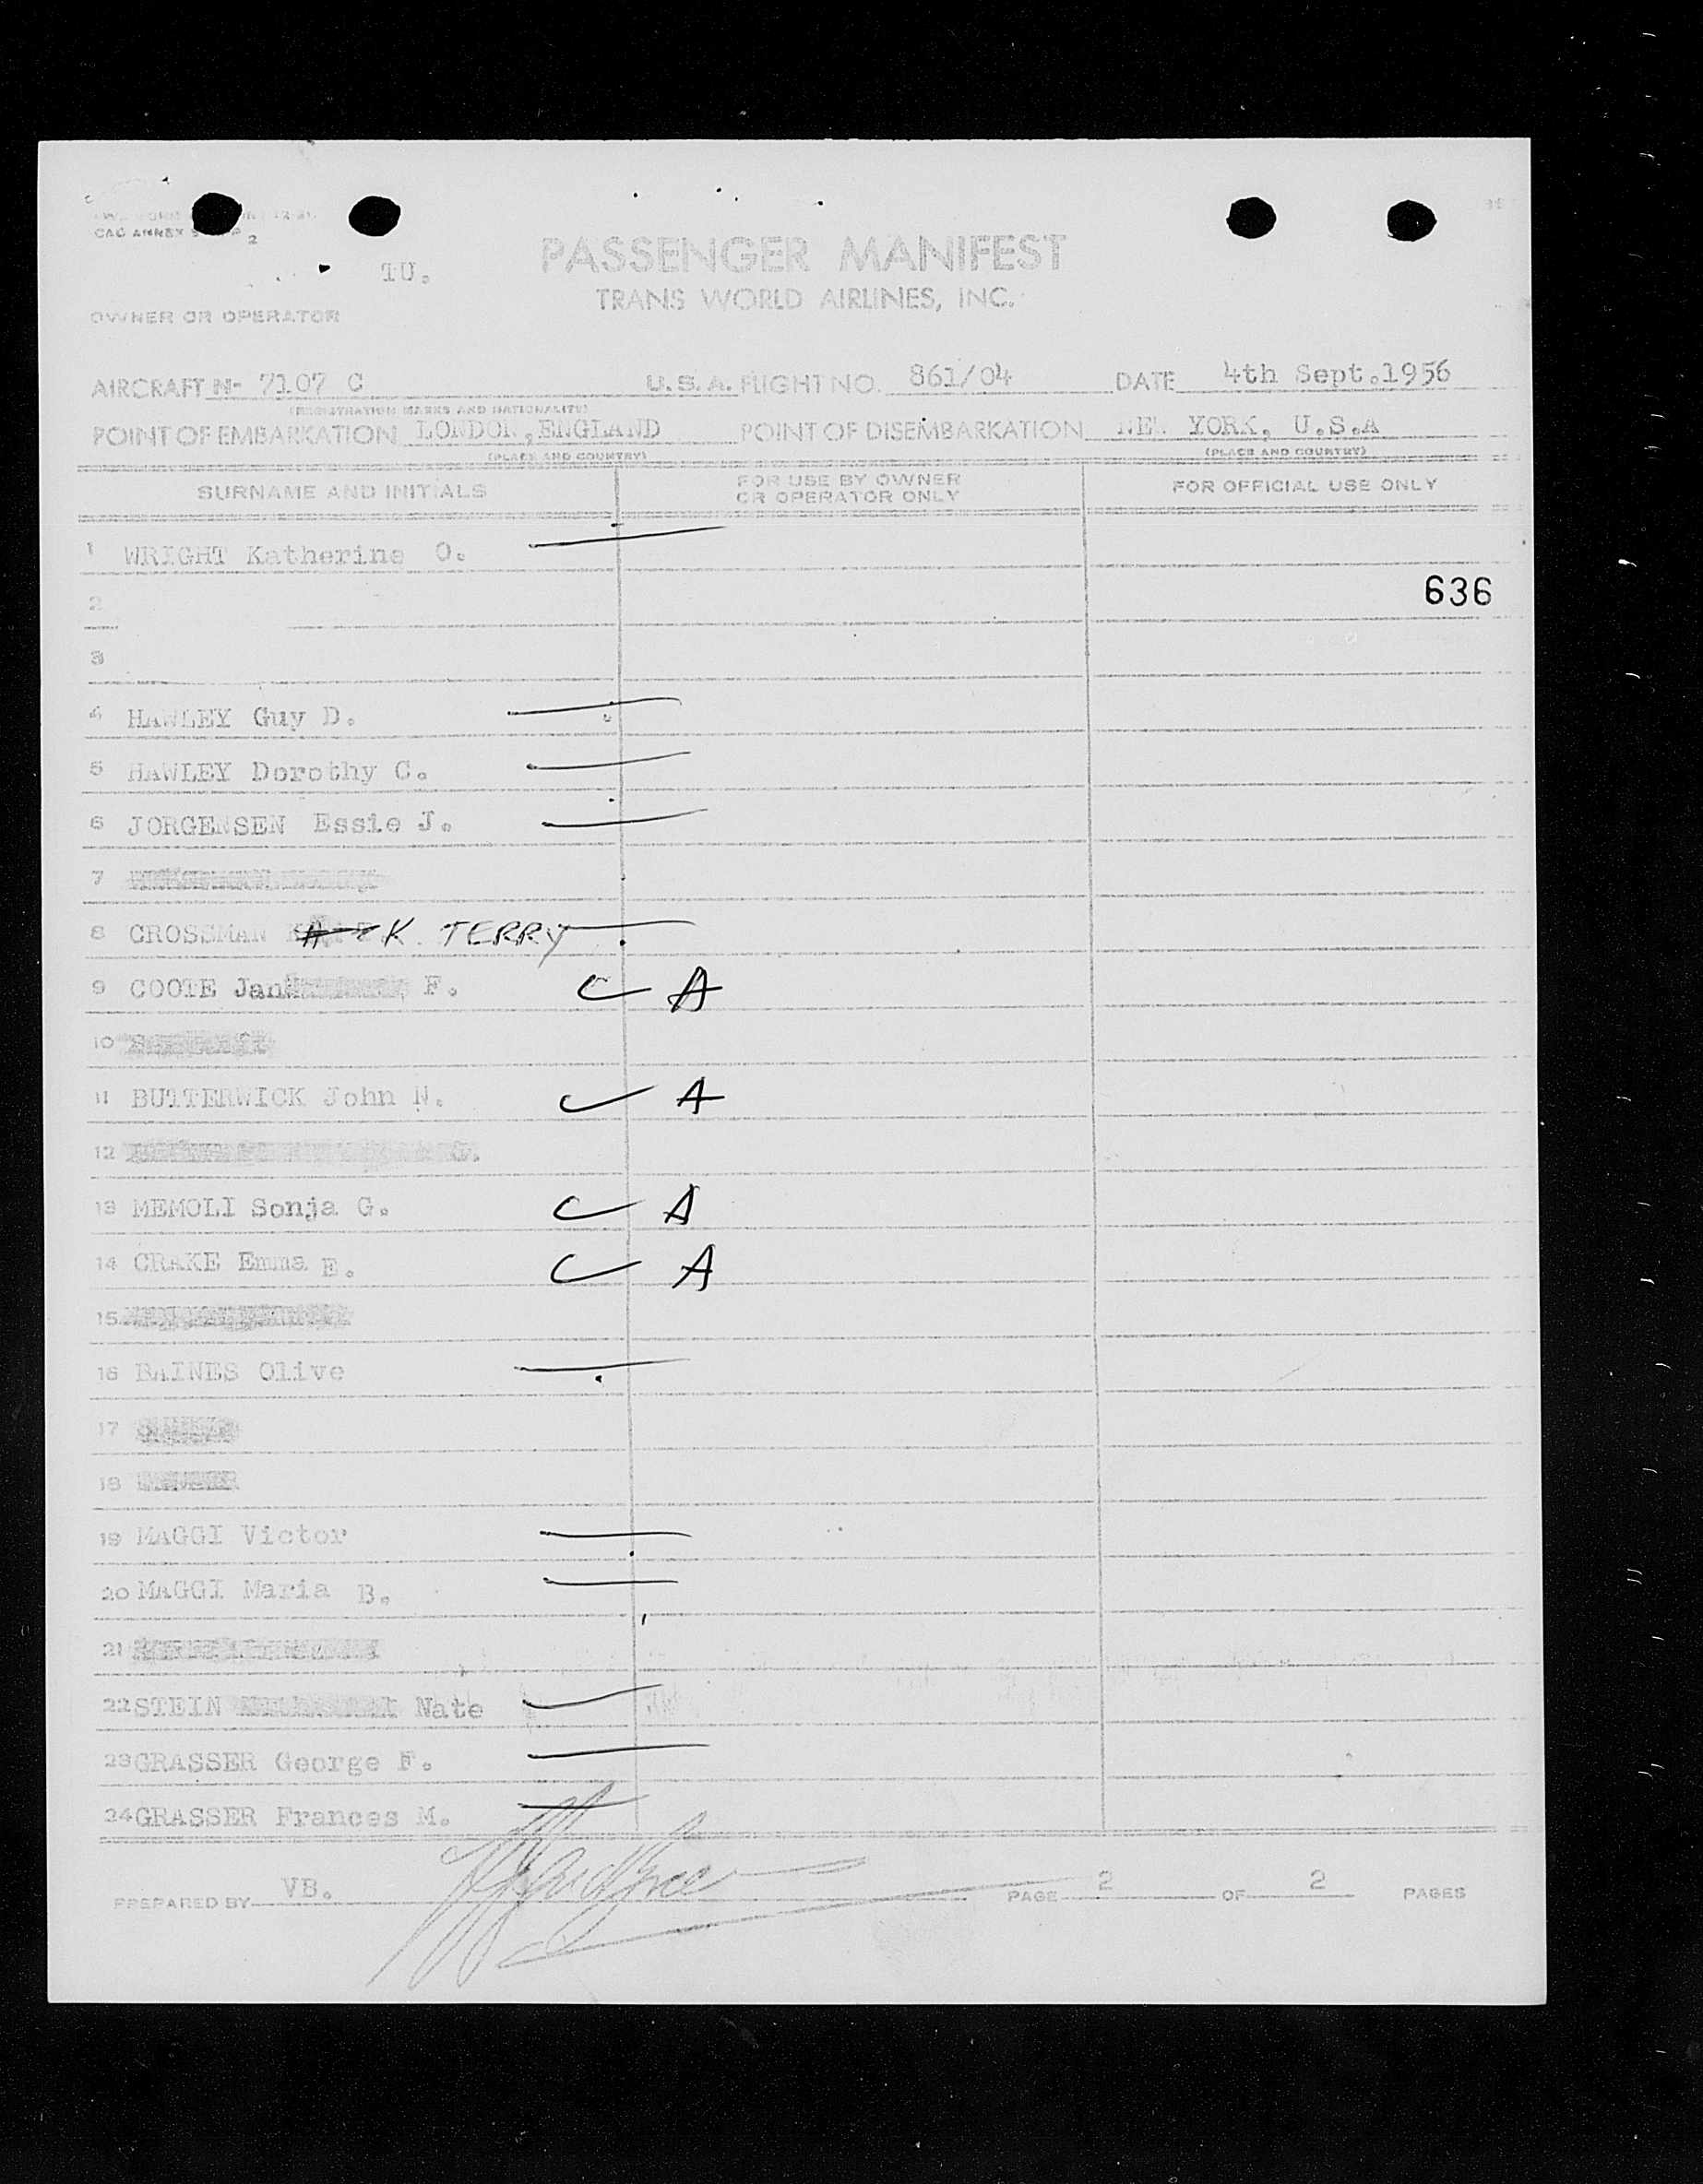 CAO ANNEX 9
2
TU.
PASSENGER MANIFEST
TRANS WORLD AIRLINES, INC.
OWNER OR OPERATOR
AIRCRAFT N- 7107 C U.S.A. FLIGHT NO. 861/04 DATE 4th Sept.1956
(REGISTRATION MARKS AND NATIONALITY)
POINT OF EMBARKATION LONDON, ENGLAND POINT OF DISEMBARKATION NEW YORK, U.S.A
(PLACE AND COUNTRY) (PLACE AND COUNTRY)
SURNAME AND INITIALS FOR USE BY OWNER OR OPERATOR ONLY FOR OFFICIAL USE ONLY
1 WRIGHT Katherine O.
2 636
3
4 HAWLEY Guy D.
5 HAWLEY Dorothy C.
6 JORGENSEN Essie J.
7
8 CROSSMAN K. TERRY
9 COOTE Jan F. A
10
11 BUTTERWICK John N. A
12 G.
13 MEMOLI Sonja G. A
14 CRAKE Emma E. A
15
16 BAINES Olive
17
18
19 MAGGI Victor
20 MAGGI Maria B.
21
22 STEIN Nate
23 GRASSER George F.
24 GRASSER Frances M.
PREPARED BY VB. PAGE 2 OF 2 PAGES